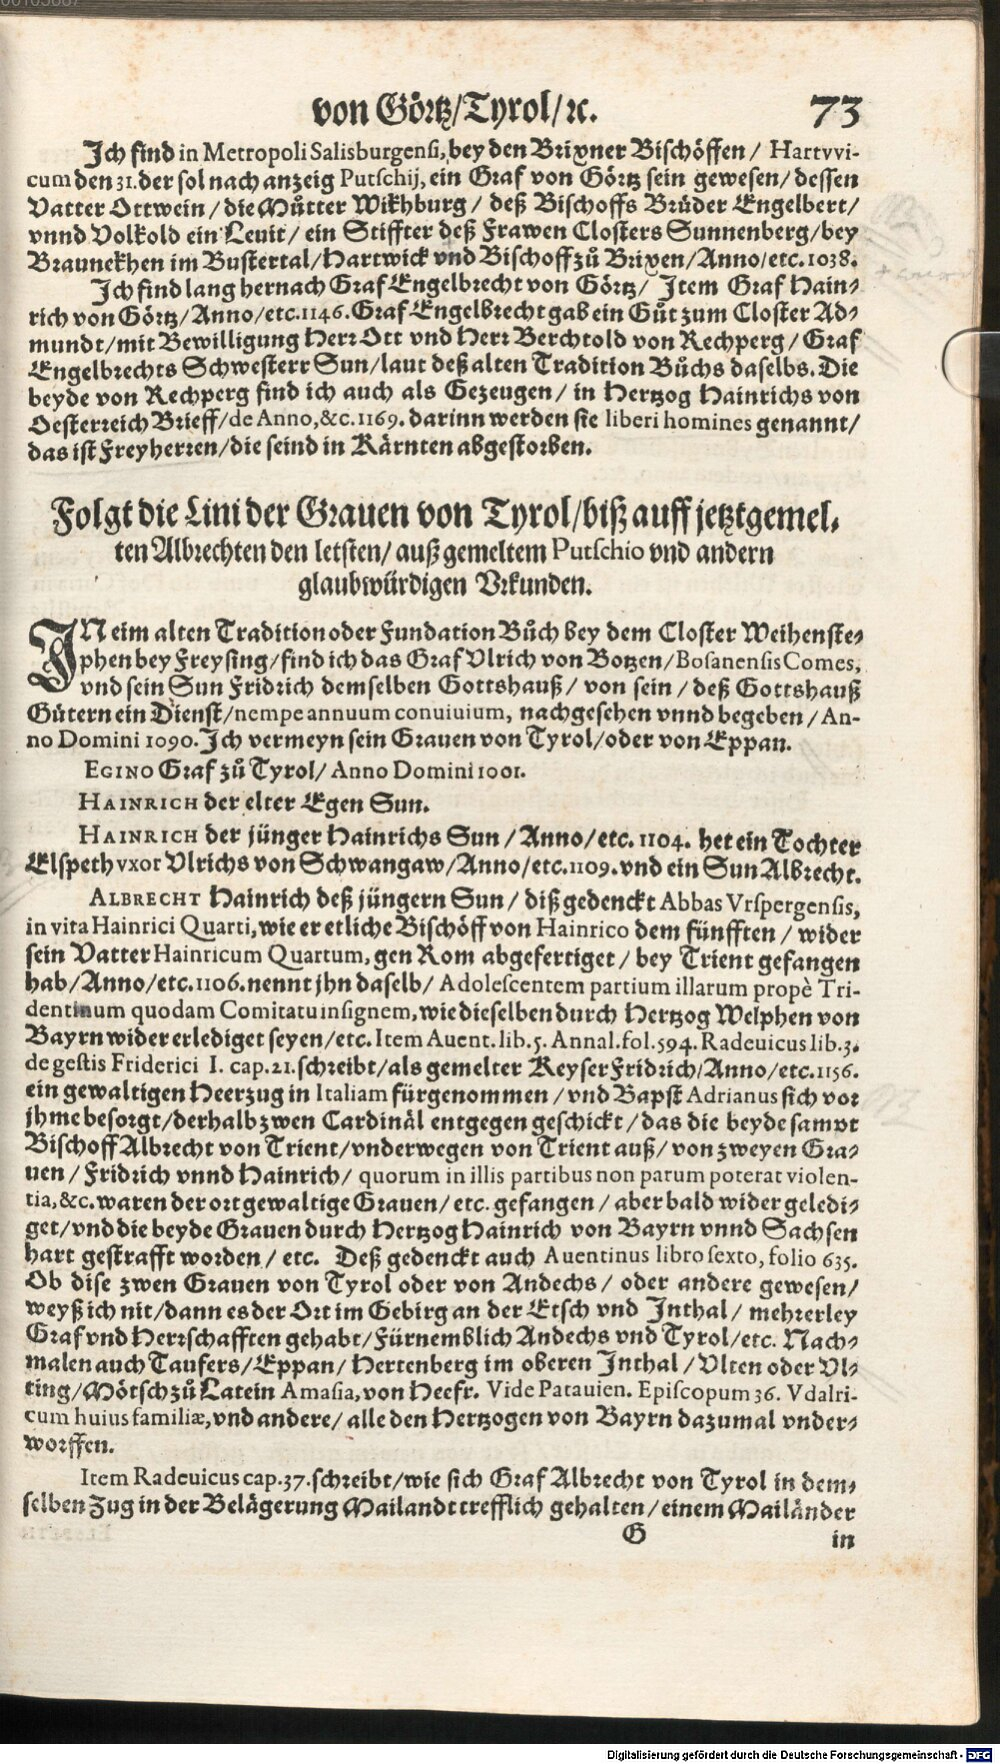 von Görtz/Tyrol/ꝛc. 73
Jch find in Metropoli Salisburgensi, bey den Brixner Bischöffen/ Hartvvi-
cum den 31. der sol nach anzeig Putschij, ein Graf von Görtz sein gewesen/ dessen
Vatter Ottwein/ die Můtter Wikhburg/ deß Bischoffs Brůder Engelbert/
vnnd Volkold ein Leuit/ ein Stiffter deß Frawen Closters Sunnenberg/ bey
Braunekhen im Bustertal/ Hartwick vnd Bischoff zů Brixen/ Anno/ etc. 1038.
Jch find lang hernach Graf Engelbrecht von Görtz/ Jtem Graf Hain-
rich von Görtz/ Anno/ etc. 1146. Graf Engelbrecht gab ein Gůt zum Closter Ad-
mundt/ mit Bewilligung Herr Ott vnd Herr Berchtold von Rechperg/ Graf
Engelbrechts Schwesterr Sun/ laut deß alten Tradition Bůchs daselbs. Die
beyde von Rechperg find ich auch als Gezeugen/ in Hertzog Hainrichs von
Oesterreich Brieff/ de Anno, &c. 1169. darinn werden sie liberi homines genannt/
das ist Freyherren/ die seind in Kärnten abgestorben.
Folgt die Lini der Grauen von Tyrol/ biß auff jetztgemel-
ten Albrechten den letsten/ auß gemeltem Putschio vnd andern
glaubwürdigen Vrkunden.
JN eim alten Tradition oder Fundation Bůch bey dem Closter Weihenste-
phen bey Freysing/ find ich das Graf Vlrich von Botzen/ Bosanensis Comes,
vnd sein Sun Fridrich demselben Gottshauß/ von sein/ deß Gottshauß
Gütern ein Dienst/ nempe annuum conuiuium, nachgesehen vnnd begeben/ An-
no Domini 1090. Jch vermeyn sein Grauen von Tyrol/ oder von Eppan.
EGINO Graf zů Tyrol/ Anno Domini 1001.
HAINRICH der elter Egen Sun.
HAINRICH der jünger Hainrichs Sun/ Anno/ etc. 1104. het ein Tochter
Elspeth vxor Vlrichs von Schwangaw/ Anno/ etc. 1109. vnd ein Sun Albrecht.
ALBRECHT Hainrich deß jüngern Sun/ diß gedenckt Abbas Vrspergensis,
in vita Hainrici Quarti, wie er etliche Bischöff von Hainrico dem fünfften/ wider
sein Vatter Hainricum Quartum, gen Rom abgefertiget/ bey Trient gefangen
hab/ Anno/ etc. 1106. nennt jhn daselb/ Adolescentem partium illarum propè Tri-
dentinum quodam Comitatu insignem, wie dieselben durch Hertzog Welphen von
Bayrn wider erlediget seyen/ etc. Item Auent. lib. 5. Annal. fol. 594. Radeuicus lib. 3.
de gestis Friderici I. cap. 21. schreibt/ als gemelter Keyser Fridrich/ Anno/ etc. 1156.
ein gewaltigen Heerzug in Italiam fürgenommen/ vnd Bapst Adrianus sich vor
jhme besorgt/ derhalb zwen Cardinäl entgegen geschickt/ das die beyde sampt
Bischoff Albrecht von Trient/ vnderwegen von Trient auß/ von zweyen Gra-
uen/ Fridrich vnnd Hainrich/ quorum in illis partibus non parum poterat violen-
tia, &c. waren der ort gewaltige Grauen/ etc. gefangen/ aber bald wider geledi-
get/ vnd die beyde Grauen durch Hertzog Hainrich von Bayrn vnnd Sachsen
hart gestrafft worden/ etc. Deß gedenckt auch Auentinus libro sexto, folio 635.
Ob dise zwen Grauen von Tyrol oder von Andechs/ oder andere gewesen/
weyß ich nit/ dann es der Ort im Gebirg an der Etsch vnd Jnthal/ mehrerley
Graf vnd Herrschafften gehabt/ Fürnemblich Andechs vnd Tyrol/ etc. Nach-
malen auch Taufers/ Eppan/ Hertenberg im oberen Jnthal/ Vlten oder Vl-
ting/ Mötsch zů Latein Amasia, von Heefr. Vide Patauien. Episcopum 36. Vdalri-
cum huius familiæ, vnd andere/ alle den Hertzogen von Bayrn dazumal vnder-
worffen.
Item Radeuicus cap. 37. schreibt/ wie sich Graf Albrecht von Tyrol in dem-
selben Zug in der Belägerung Mailandt trefflich gehalten/ einem Mailänder
G in
Digitalisierung gefördert durch die Deutsche Forschungsgemeinschaft - DFG